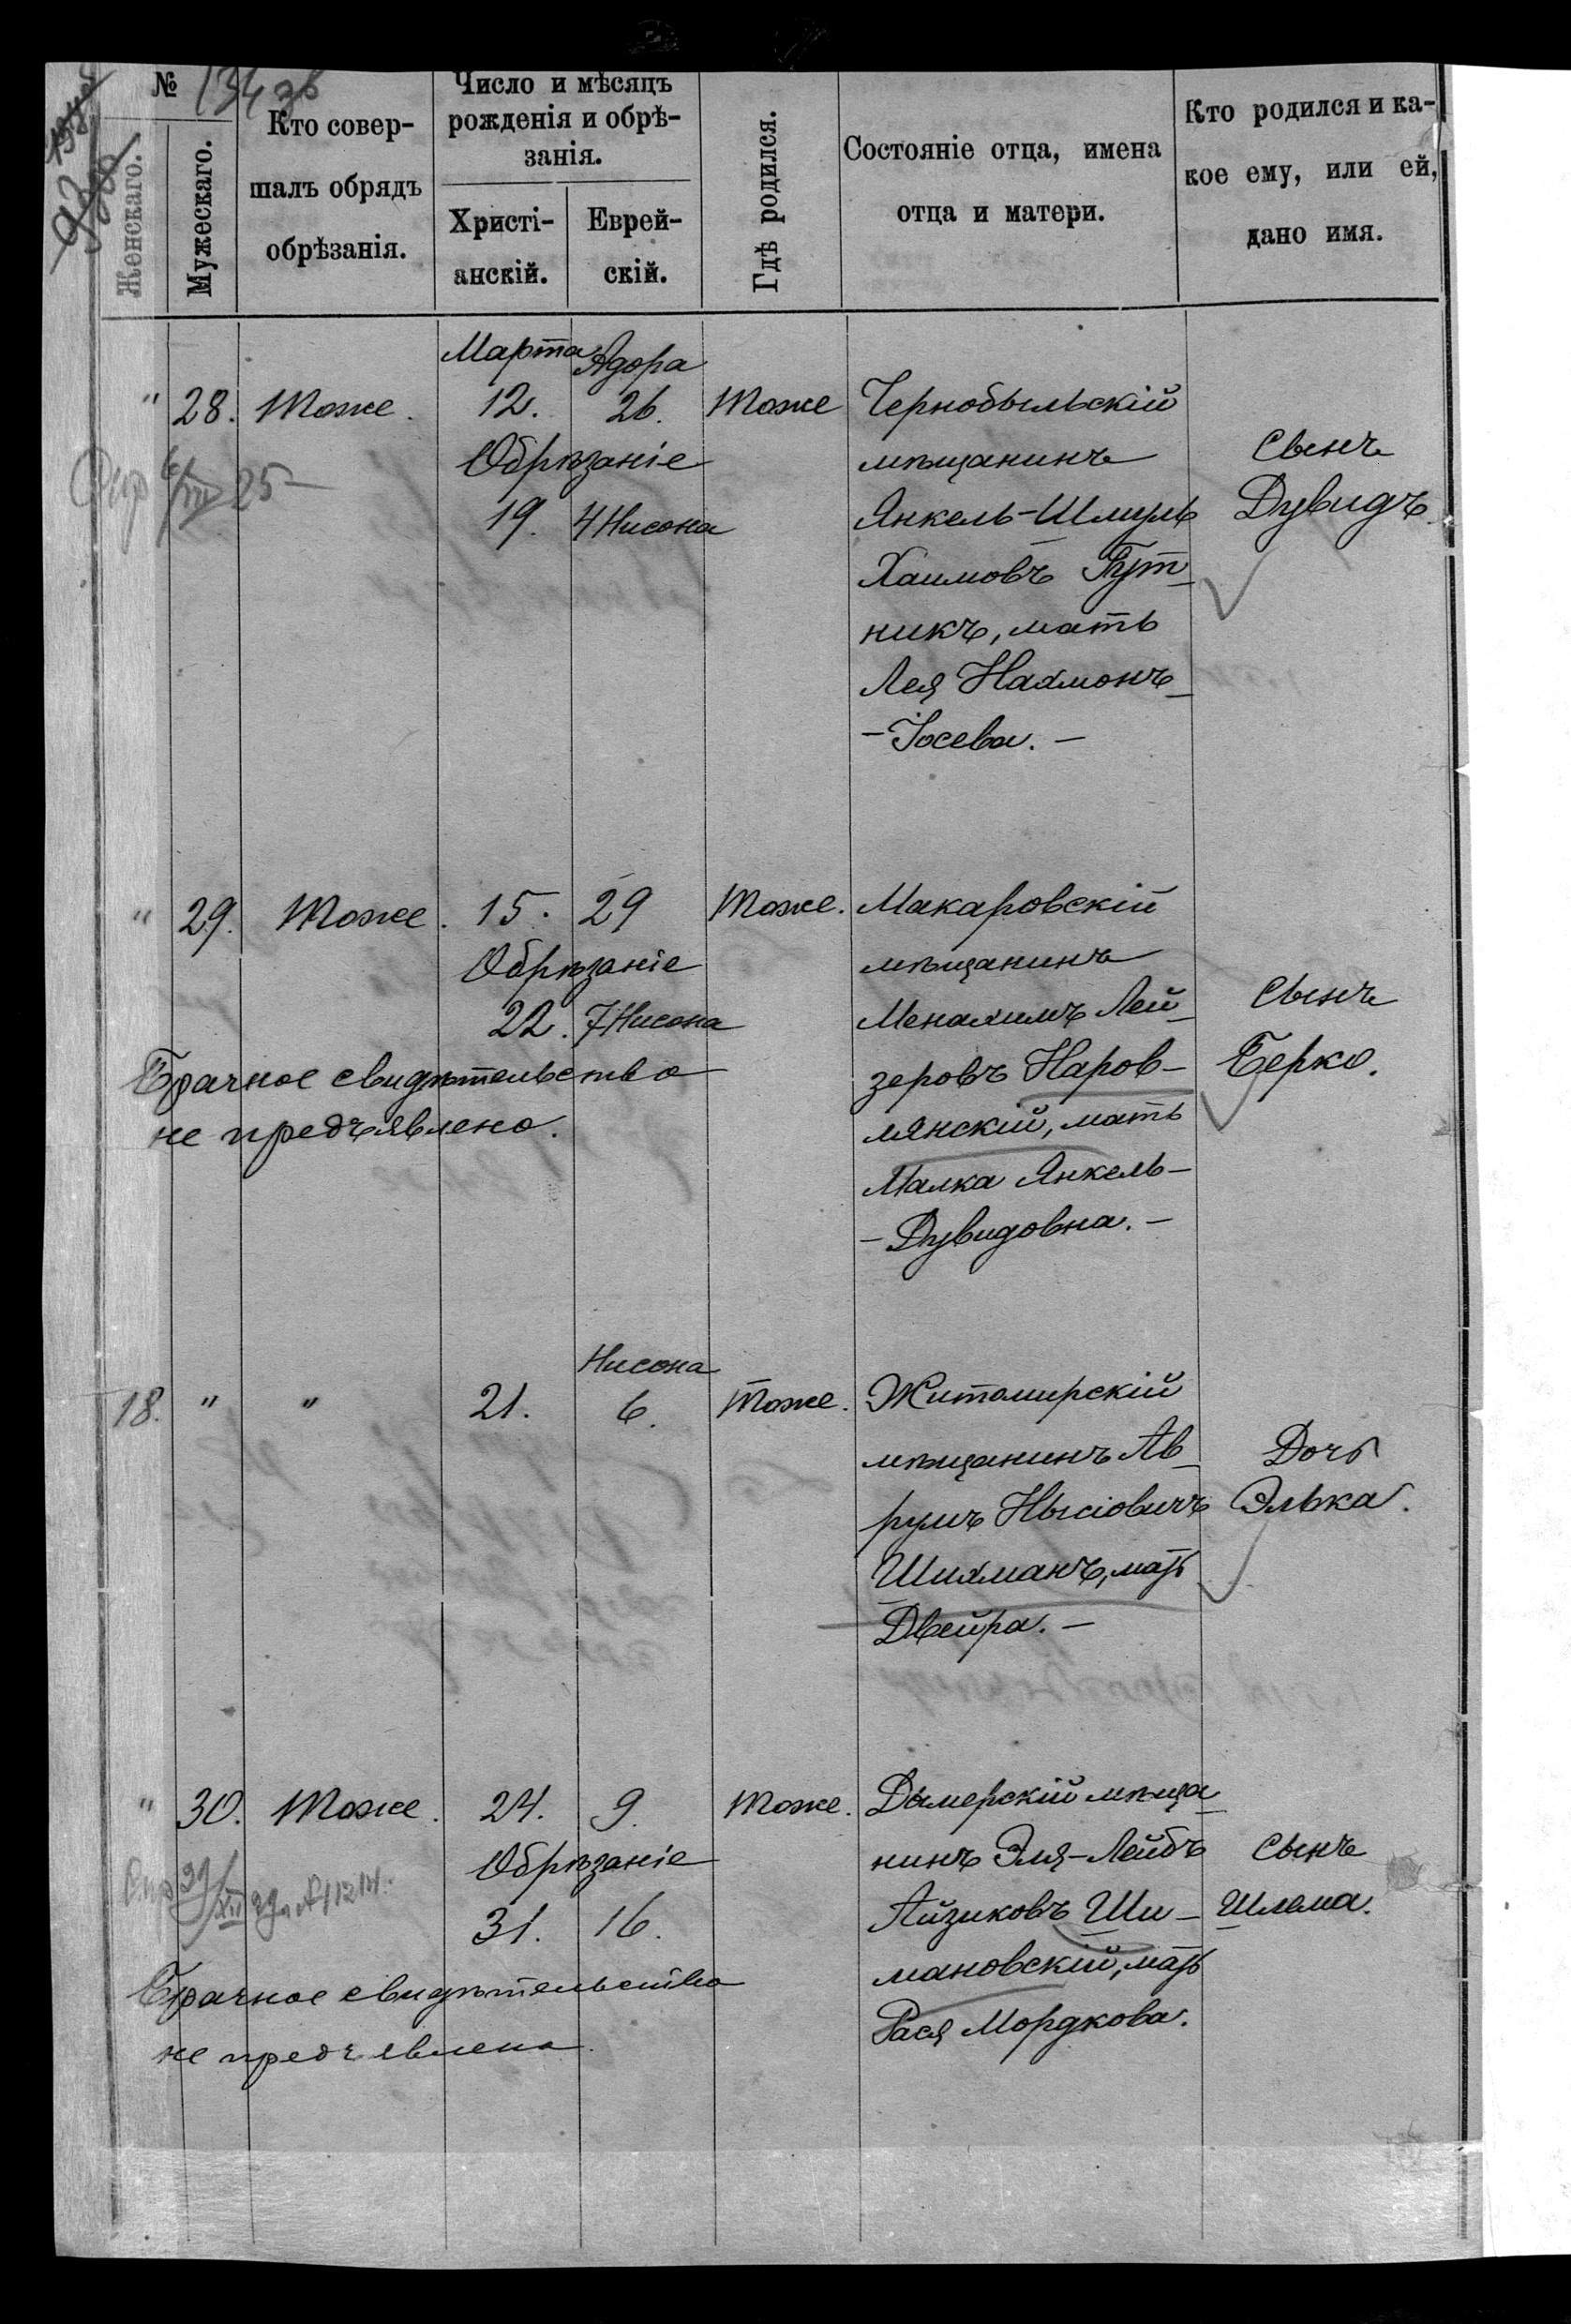 № 134 об
Женскаго.
Мужескаго.
Кто совер-
шалъ обрядъ
обрѣзанія.
Число и мѣсяцъ
рожденія и обрѣ-
занія.
Христі-
анскій.
Еврей-
скій.
Гдѣ родился.
Состояніе отца, имена
отца и матери.
Кто родился и ка-
кое ему, или ей,
дано имя.
Марта Адора
" 28. Тоже. 12. 26. Тоже Чернобыльскій
Обрѣзаніе мѣщанинъ Сынъ
19. 4 Нисона Янкель-Шмуль Дувидъ.
Хаимовъ Гут-
никъ, мать
Лея Нахмонъ-
-Іосева. -
" 29. Тоже. 15. 29 Тоже. Макаровскій
Обрѣзаніе мѣщанинъ
22. 7 Нисона Менахимъ Лей- Сынъ
Брачное свидѣтельство зеровъ Наров- Берко.
не предъявлено. лянскій, мать
Малка Янкель-
-Дувидовна. -
Нисона
18. " " 21. 6. Тоже. Житомирскій
мѣщанинъ Ав- Дочь
румъ Нысіовичъ Элька.
Шихманъ, мать
Двейра. -
" 30. Тоже. 24. 9. Тоже. Дымерскій мѣща-
Обрѣзаніе нинъ Эля-Лейбъ Сынъ
31. 16. Айзиковъ Ши- Шлема.
Брачное свидѣтельство мановскій, мать
не предъявлено. Рася Мордкова.